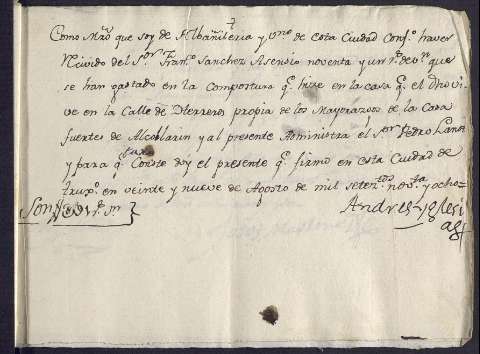 Como Mro que soy de Albañileria y vno de esta Ciudad Confo haver
Recivido del Sor Franco Sanchez Asensio noventa y un rs de vn que
se han gastado en la Compostura q hize en la casa q el dho vi
ve en la Calle de Herreros propia de los Mayorazgos de la Casa
fuertes de Alcollarin y al presente Administra el Sor Pedro
y para q Conste doy el presente q firmo en esta Ciudad de
truxo en veinte y nueve de Agosto de mil setentos nov.ta y ocho=
Son rs vn
Andres Yglesi
as